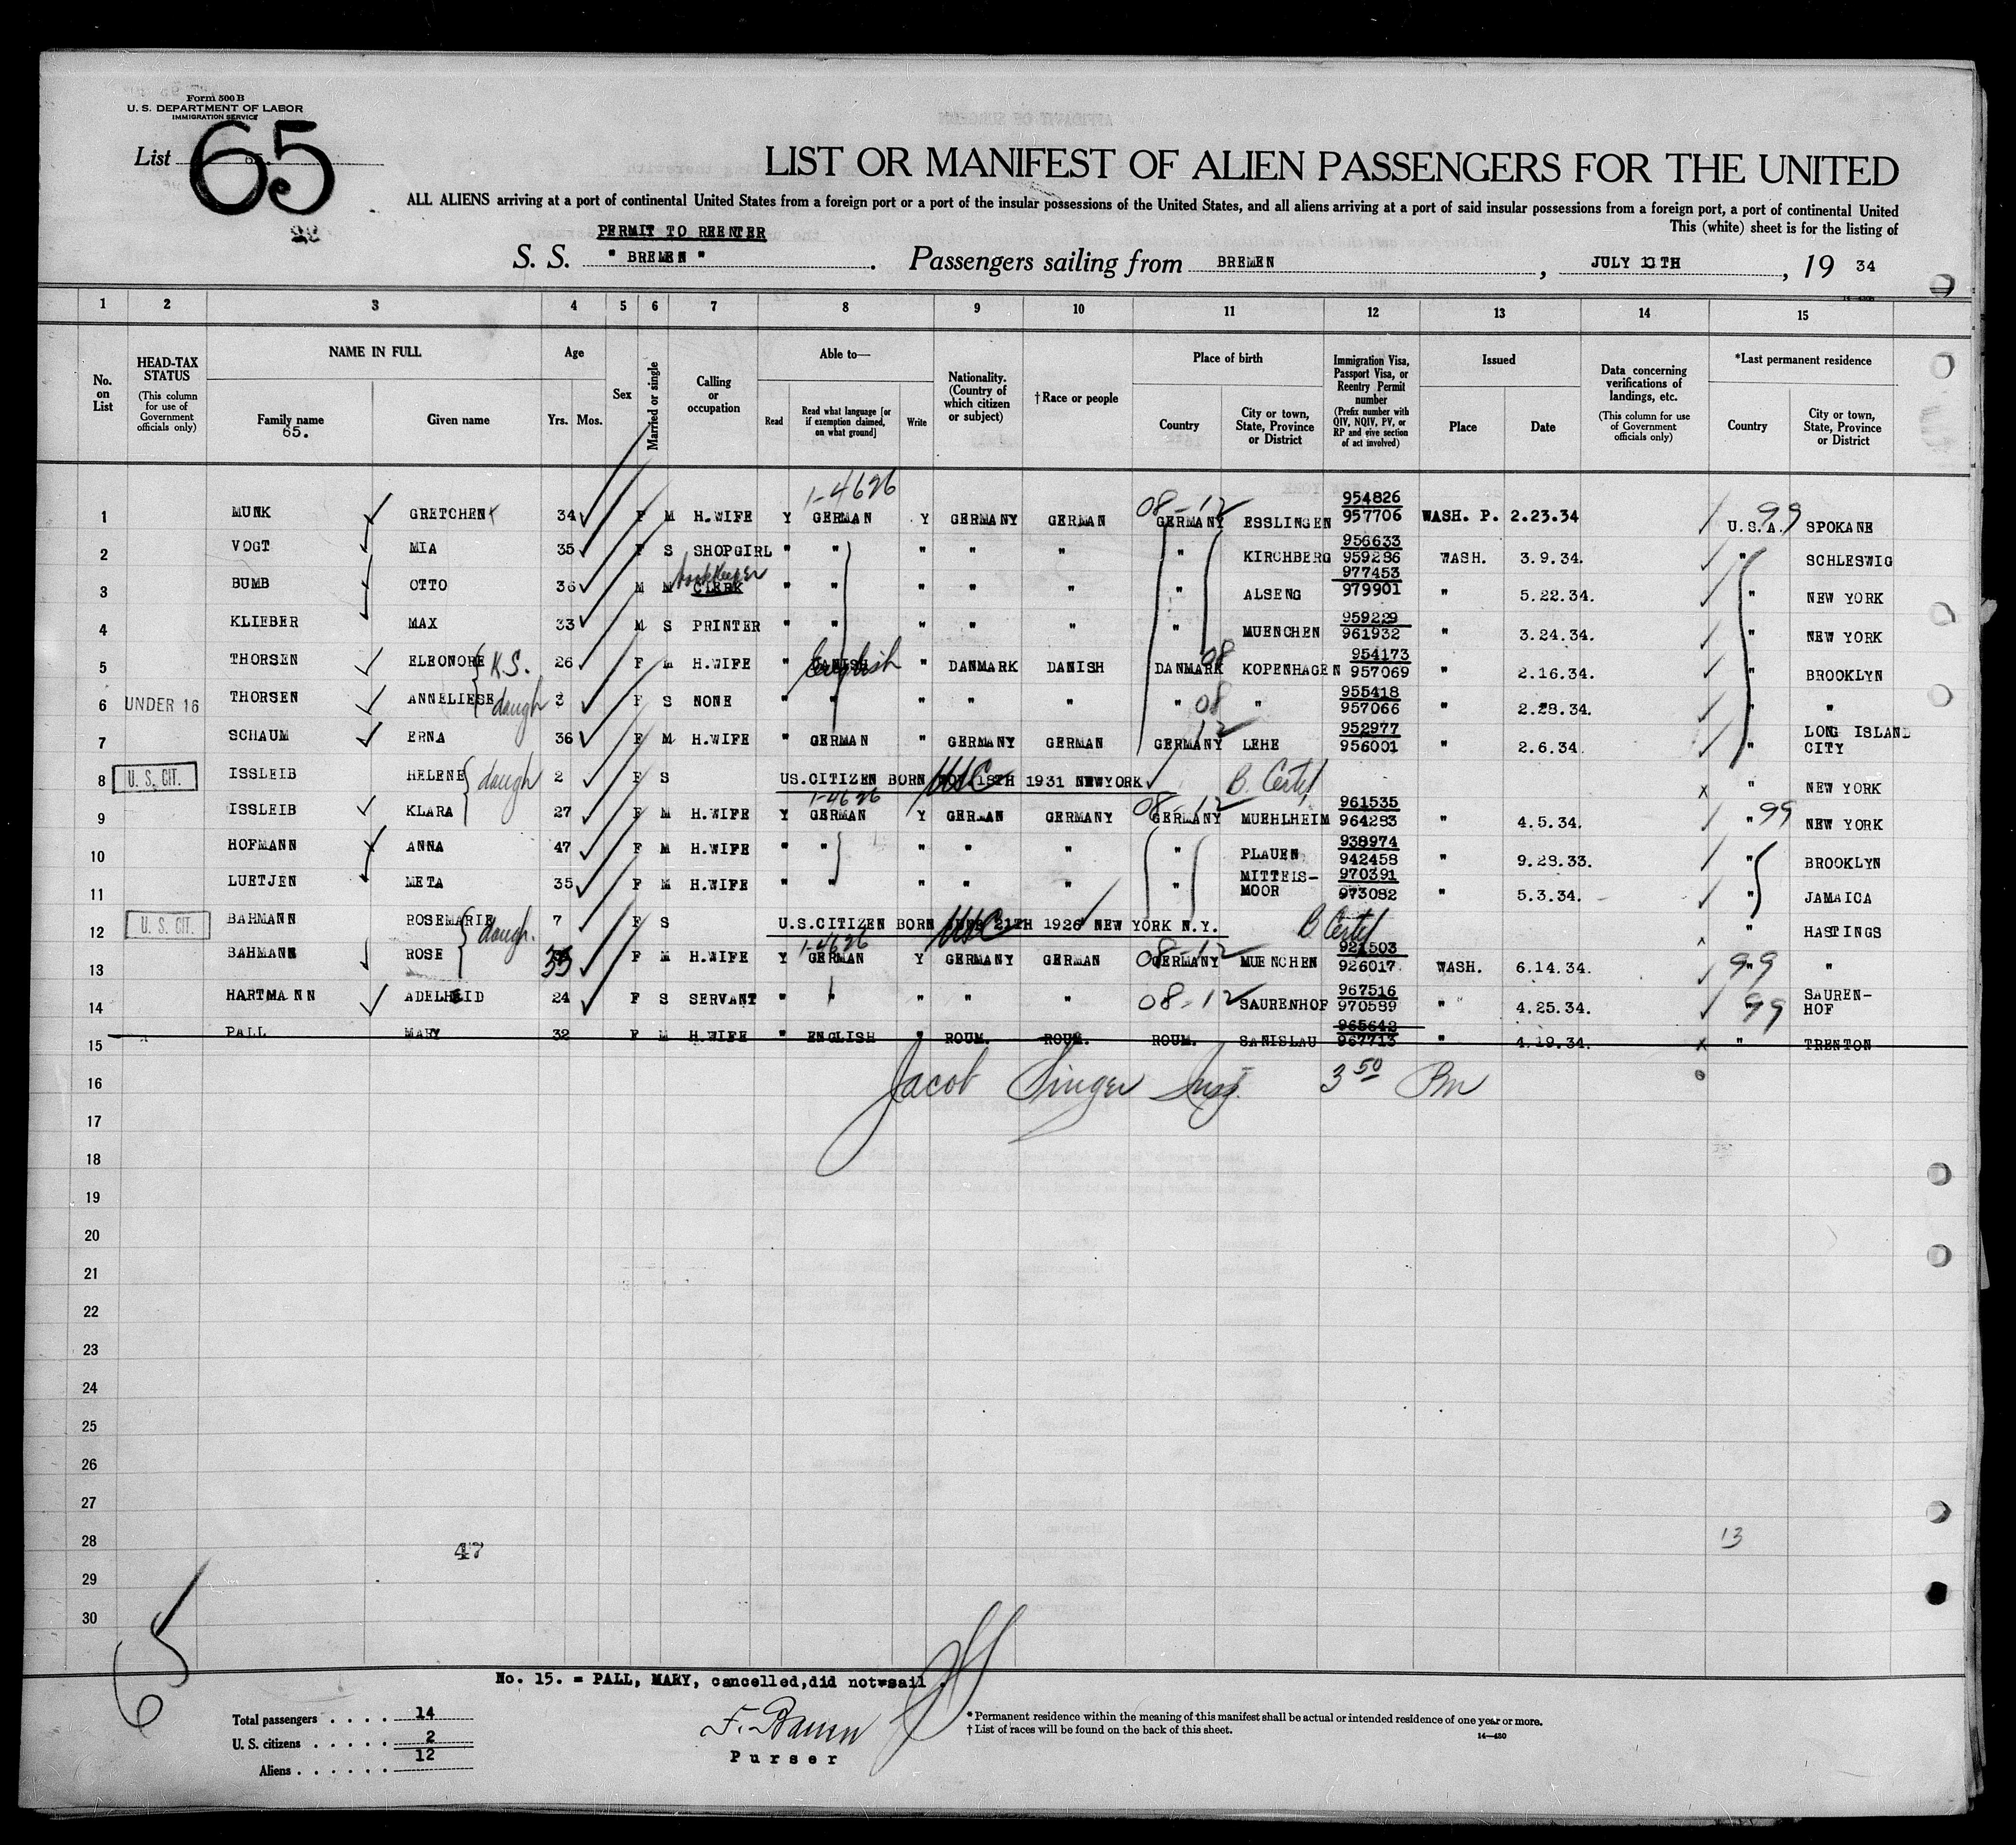 Form 500 B
U. S. DEPARTMENT OF LABOR
IMMIGRATION SERVICE
List 65
LIST OR MANIFEST OF ALIEN PASSENGERS FOR THE UNITED
ALL ALIENS arriving at a port of continental United States from a foreign port or a port of the insular possessions of the United States, and all aliens arriving at a port of said insular possessions from a foreign port, a port of continental United
This (white) sheet is for the listing of
PERMIT TO REENTER
S. S. " BREMEN " . Passengers sailing from BREMEN , JULY 13TH , 19 34
1 2 3 4 5 6 7 8 9 10 11 12 13 14 15
No. on List
HEAD-TAX STATUS (This column for use of Government officials only)
NAME IN FULL
Family name 65.
Given name
Age Yrs. Mos.
Sex
Married or single
Calling or occupation
Able to— Read Read what language [or if exemption claimed, on what ground] Write
Nationality. (Country of which citizen or subject)
† Race or people
Place of birth Country City or town, State, Province or District
Immigration Visa, Passport Visa, or Reentry Permit number (Prefix number with QIV, NQIV, PV, or RP and give section of act involved)
Issued Place Date
Data concerning verifications of landings, etc. (This column for use of Government officials only)
*Last permanent residence Country City or town, State, Province or District
1-4626 08-12 99
1 MUNK GRETCHEN 34 F M H.WIFE Y GERMAN Y GERMANY GERMAN GERMANY ESSLINGEN 954826 957706 WASH. P. 2.23.34 U.S.A. SPOKANE
2 VOGT MIA 35 F S SHOPGIRL " " " " " " KIRCHBERG 956633 959286 WASH. 3.9.34. " SCHLESWIG
3 BUMB OTTO 36 M M CLERK bookkeeper " " " " " " ALSENG 977453 979901 " 5.22.34. " NEW YORK
4 KLIEBER MAX 33 M S PRINTER " " " " " " MUENCHEN 959229 961932 " 3.24.34. " NEW YORK
5 THORSEN ELEONORE K.S. 26 F M H.WIFE " DANISH English " DANMARK DANISH DANMARK 08 KOPENHAGEN 954173 957069 " 2.16.34. " BROOKLYN
6 UNDER 16 THORSEN ANNELIESE daugh 3 F S NONE " " " " " " 08 " 955418 957066 " 2.28.34. " "
7 SCHAUM ERNA 36 F M H.WIFE " GERMAN " GERMANY GERMAN GERMANY 12 LEHE 952977 956001 " 2.6.34. " LONG ISLAND CITY
8 U. S. CIT. ISSLEIB HELENE daugh 2 F S US.CITIZEN BORN USC 18TH 1931 NEWYORK B. Certf " NEW YORK
9 ISSLEIB KLARA 27 F M H.WIFE Y 1-4626 GERMAN Y GERMAN GERMANY 08-12 GERMANY MUEHLHEIM 961535 964283 " 4.5.34. " 99 NEW YORK
10 HOFMANN ANNA 47 F M H.WIFE " " " " " " PLAUEN 938974 942458 " 9.28.33. " BROOKLYN
11 LUETJEN META 35 F M H.WIFE " " " " " " MITTELS-MOOR 970391 973082 " 5.3.34. " JAMAICA
12 U. S. CIT. BAHMANN ROSEMARIE daugh. 7 F S U.S.CITIZEN BORN USC JUNE 21TH 1926 NEW YORK N.Y. B Certf " HASTINGS
13 BAHMANN ROSE 35 F M H.WIFE Y 1-4626 GERMAN Y GERMANY GERMAN 08-12 GERMANY MUENCHEN 921503 926017 WASH. 6.14.34. " 99 "
14 HARTMANN ADELHEID 24 F S SERVANT " " " " " 08-12 SAURENHOF 967516 970589 " 4.25.34. " 99 SAUREN-HOF
15 PALL MARY 32 F M H.WIFE " ENGLISH " ROUM. ROUM. ROUM. SANISLAU 965642 967713 " 4.19.34. " TRENTON
16 Jacob Singer Insp. 3 50 Pm
17
18
19
20
21
22
23
24
25
26
27
28 47 13
29
30
65
No. 15. = PALL, MARY, cancelled, did not sail .
Total passengers . . . . 14
U. S. citizens . . . . . 2
Aliens . . . . . . 12
F. Bauer
Purser
* Permanent residence within the meaning of this manifest shall be actual or intended residence of one year or more.
† List of races will be found on the back of this sheet.
14—430